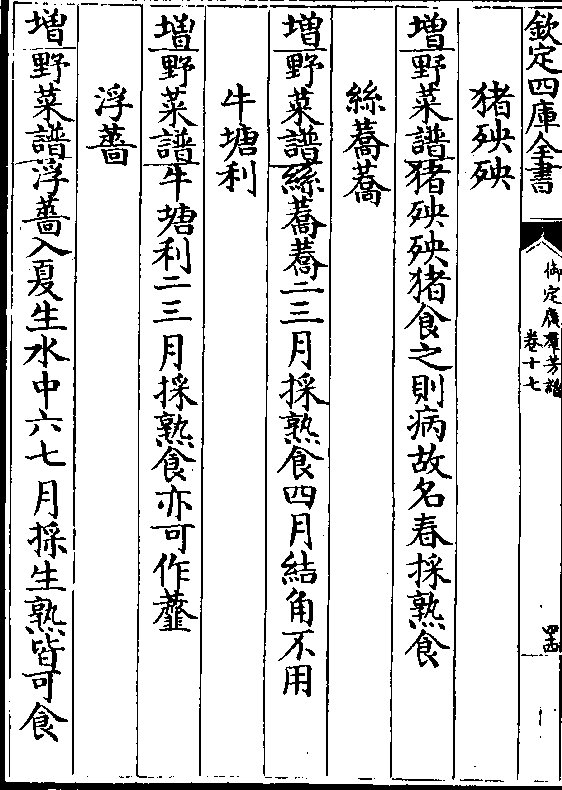 欽定四庫全書
御定廣羣芳譜
卷十七
四古
猪殃殃
增野菜譜猪殃殃猪食之則病故名春採熟食
絲蕎蕎
增野菜譜絲蕎蕎二三月採熟食四月結角不用
牛塘利
增野菜譜牛塘利二三月採熟食亦可作虀
浮薔
增野菜譜浮薔入夏生水中六七月採生熟皆可食